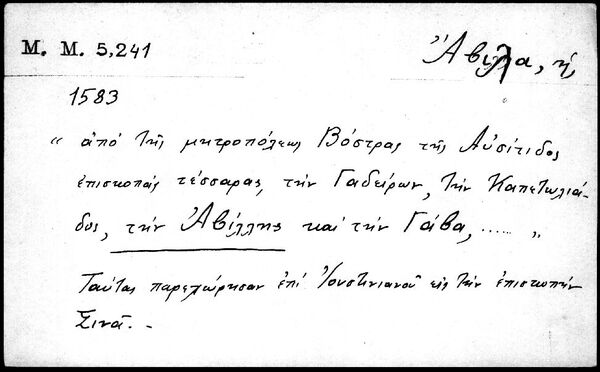 Μ. Μ. 5,241
Ἀβίλα, ἡ,
1583
" ἀπό τῆς μητροπόλεως Βόστρας τῆς Αὐσίτιδος
ἐπισκοπάς τέσσαρας, τήν Γαδείρων, τήν Καπετωλιά-
δος, τήν Ἀβίλλης καί τήν Γάβα, ...... "
Ταύτας παρεχώρησαν ἐπί Ἰουστινιανοῦ εἰς τήν ἐπισκοπήν
Σινᾶ. -